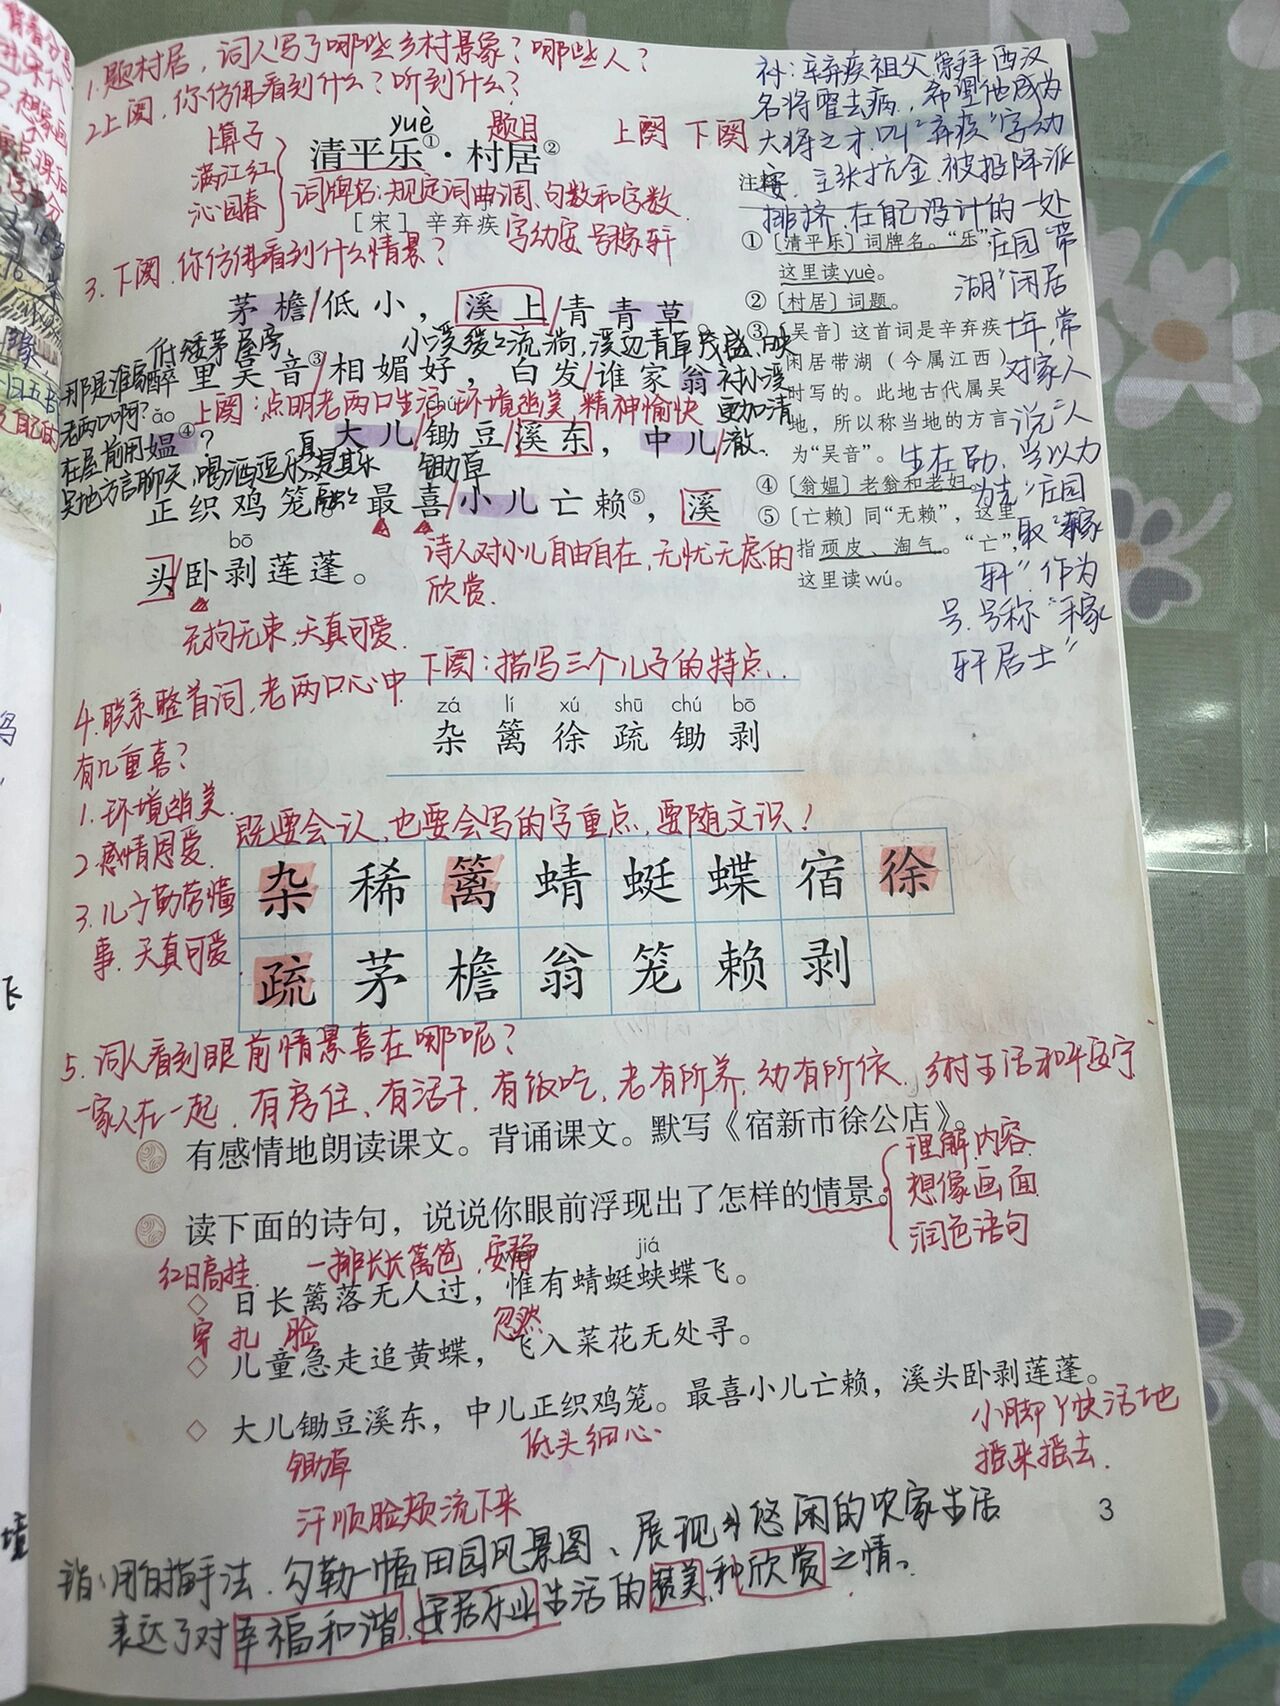 1.题村居，词人写了哪些乡村景象？哪些人？
2.上阕，你仿佛看到什么？听到什么？
卜算子
满江红
沁园春
yuè
题目
上阕 下阕
清平乐①·村居②
词牌名：规定词曲调、句数和字数
[宋] 辛弃疾
字幼安 号稼轩
3.下阕，你仿佛看到什么情景？
茅檐/低小，溪上/青青草。
低矮茅屋旁
小溪缓缓流淌，溪边青草茂盛，映
衬小溪
更加清
澈.
醉里吴音③/相媚好，白发/谁家翁
那是谁家
老两口啊？
在屋前用
吴地方言聊天，喝酒逗乐，真是其乐
融融
上阕：点明老两口生活环境幽美，精神愉快
ǎo
chú
媪④？ 大儿/锄豆/溪东，中儿/
锄草
正织鸡笼。最喜/小儿亡赖⑤，溪
bō
头/卧剥莲蓬。
诗人对小儿自由自在，无忧无虑的
欣赏.
无拘无束，天真可爱.
下阕：描写三个儿子的特点.
补：辛弃疾祖父崇拜西汉
名将霍去病，希望他成为
大将之才，叫“弃疾”字幼
安. 主张抗金，被投降派
排挤，在自己设计的一处
庄园“带
湖”闲居
十年，常
对家人
说“人
生在勤，当以力
为先”庄园
取“稼
轩”作为
号.号称“稼
轩居士”
注释
①［清平乐］词牌名。“乐”，
这里读yuè。
②［村居］词题。
③［吴音］这首词是辛弃疾
闲居带湖（今属江西）
时写的。此地古代属吴
地，所以称当地的方言
为“吴音”。
④［翁媪］老翁和老妇。
⑤［亡赖］同“无赖”，这里
指顽皮、淘气。“亡”，
这里读wú。
4.联系整首词，老两口心中
有几重喜？
1.环境幽美.
2.感情恩爱.
3.儿子勤劳懂
事、天真可爱
zá lí xú shū chú bō
杂 篱 徐 疏 锄 剥
既要会认，也要会写的字重点，要随文识！
杂 稀 篱 蜻 蜓 蝶 宿 徐
疏 茅 檐 翁 笼 赖 剥
5.词人看到眼前情景喜在哪呢？
一家人在一起，有房住、有活干，有饭吃，老有所养，幼有所依，乡村生活和平安宁
有感情地朗读课文。背诵课文。默写《宿新市徐公店》。
读下面的诗句，说说你眼前浮现出了怎样的情景。
理解内容
想像画面
润色语句
红日高挂 一排长长篱笆，安静
jiá
◇ 日长篱落无人过，惟有蜻蜓蛱蝶飞。
忽然
◇ 儿童急走追黄蝶，飞入菜花无处寻。
◇ 大儿锄豆溪东，中儿正织鸡笼。最喜小儿亡赖，溪头卧剥莲蓬。
锄草
低头细心
小脚丫快活地
摇来摇去.
汗顺脸颊流下来
3
用白描手法，勾勒一幅田园风景图、展现悠闲的农家生活
表达了对幸福和谐、安居乐业生活的赞美和欣赏之情。